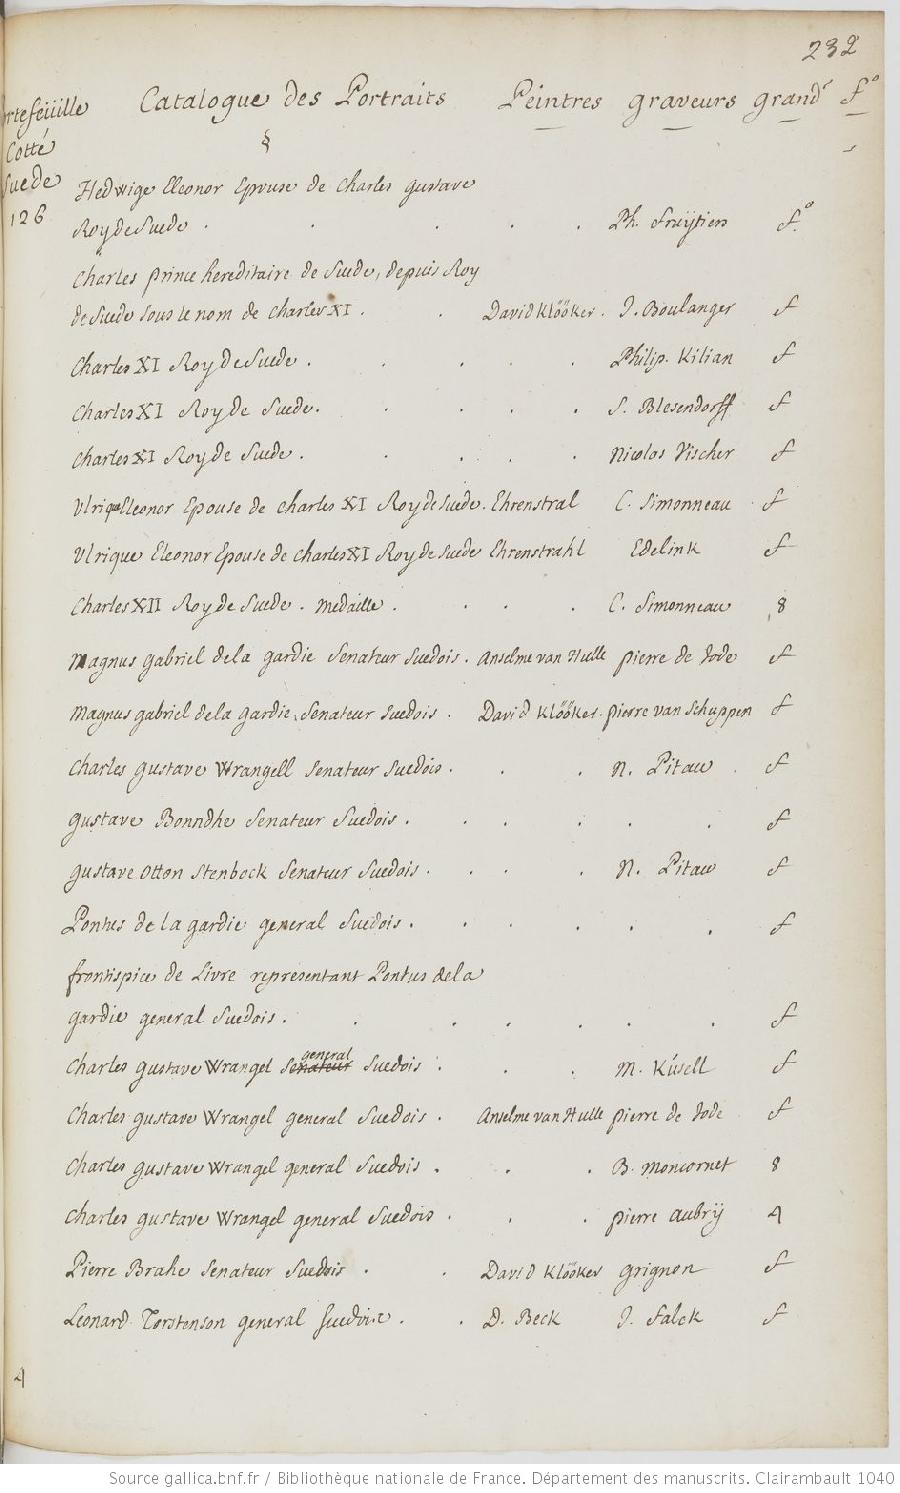 232
Portefeüille Catalogue des Portraits Péintres graveurs grandr fo
Cotté §
Suede
126
Hedwige Eleonor Epouse de Charles gustave
Roy de Suede . . . . . Ph. Fruÿtiers fo.
Charles prince hereditaire de Suede, depuis Roy
de Suede sous le nom de Charles XI . . David Klööker. J. Boulanger f
Charles XI Roy de Suede . . . . . Philip. Kilian f
Charles XI Roy de Suede . . . . . S. Blesendorff f
Charles XI Roy de Suede . . . . . Nicolos Vischer f
Ulrique Eleonor Epouse de Charles XI Roy de Suede . Ehrenstral C. Simonneau . f
Ulrique Eleonor Epouse de Charles XI Roy de Suede Ehrenstrahl Edelink f
Charles XII Roy de Suede . Medaille . . . . C. Simonneau 8
Magnus gabriel dela gardie Senateur Suedois . Anselme van Hulle pierre de Jode f
Magnus gabriel dela gardie, Senateur Suedois . David Klööker . pierre van Schuppen f
Charles gustave Wrangell Senateur Suedois . . . N. Pitau . f
gustave Bonndhe Senateur Suedois . . . . . . f
gustave Otton Stenbock Senateur Suedois . . . . N. Pitau f
Pontus de la gardie general Suedois . . . . . . f
frontispice de Livre representant Pontus dela
gardie general Suedois . . . . . . . f
Charles gustave Wrangel Senateur general Suedois . . . M. Küsell f
Charles gustave Wrangel general Suedois . Anselme van Hulle pierre de Jode f
Charles gustave Wrangel general Suedois . . . B. moncornet 8
Charles gustave Wrangel general Suedois . . . pierre aubrÿ 4
Pierre Brahe Senateur Suedois . . David Klööker grignon f
Léonard Torstenson general Suedois . . D. Beck J. Falck f
4
Source gallica.bnf.fr / Bibliothèque nationale de France. Département des manuscrits. Clairambault 1040